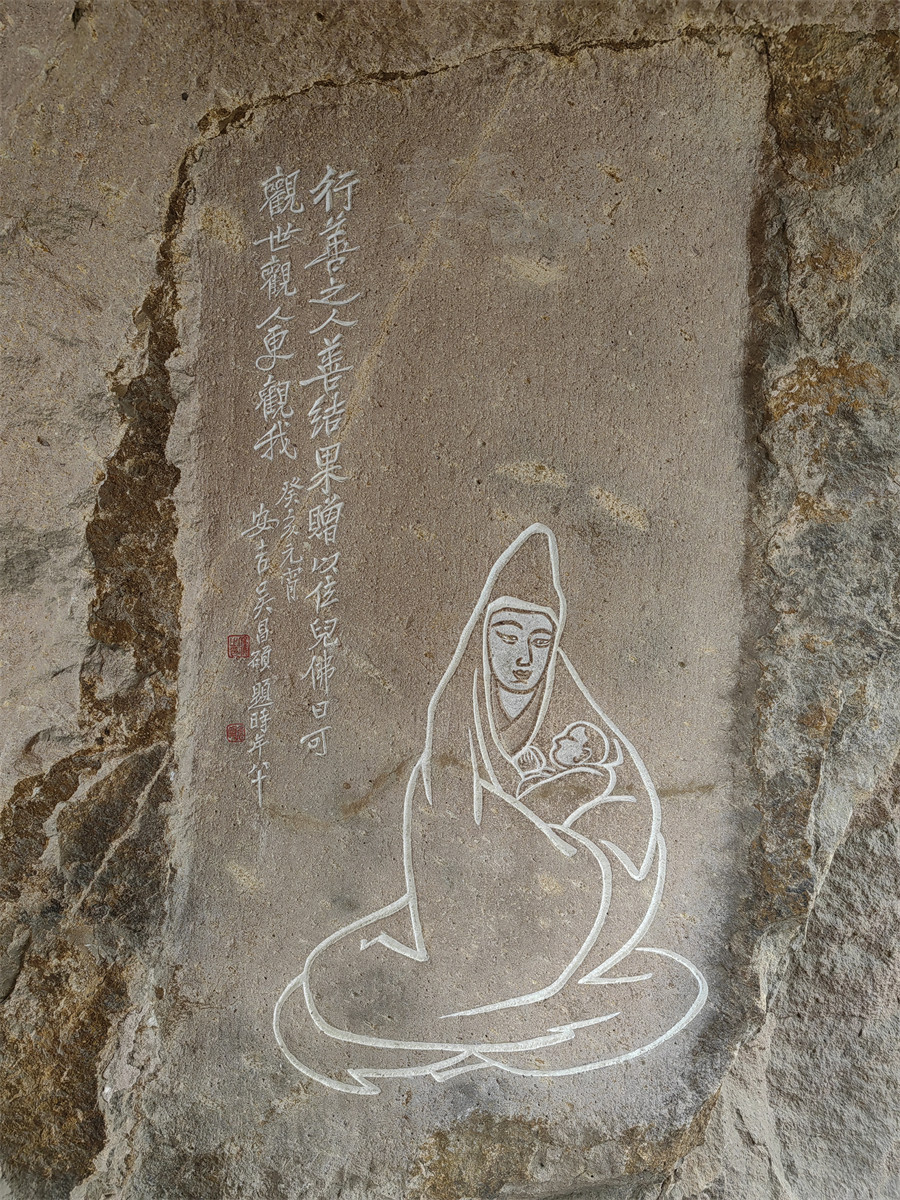 行善之人善結果贈以佳兒佛曰可
觀世觀人更觀我
癸亥元宵
安吉吳昌碩題時年八十